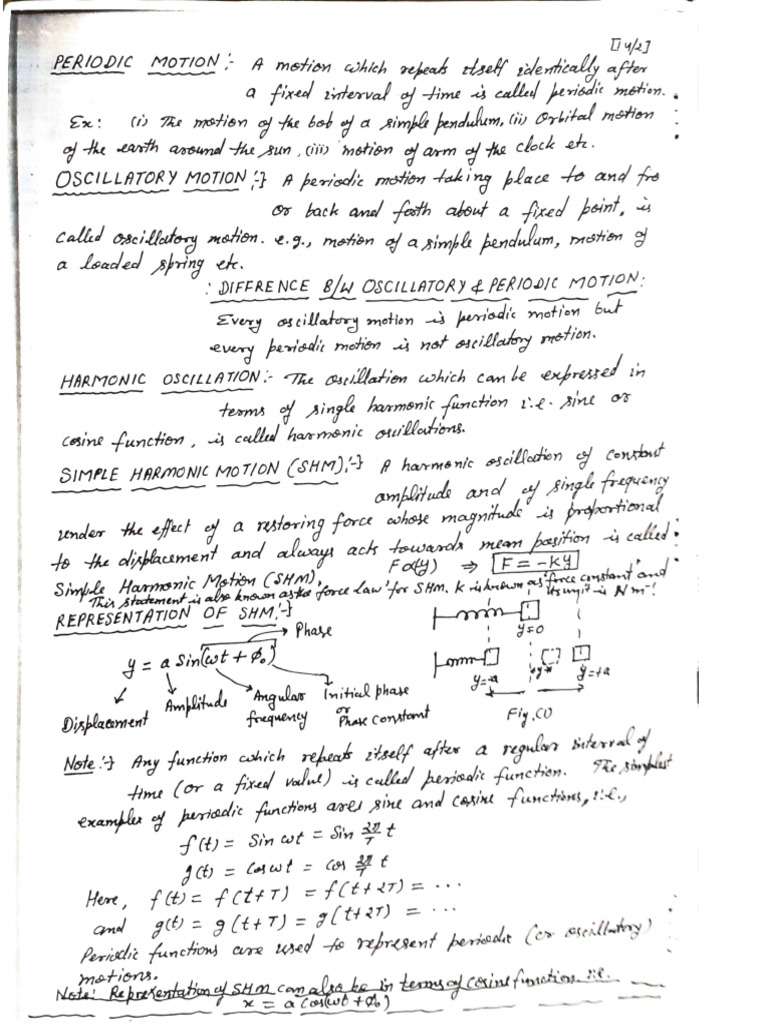 [14/2]
PERIODIC MOTION :- A motion which repeats itself identically after
a fixed interval of time is called periodic motion.
Ex: (i) The motion of the bob of a simple pendulum, (ii) Orbital motion
of the earth around the sun, (iii) motion of arm of the clock etc.
OSCILLATORY MOTION :-} A periodic motion taking place to and fro
or back and forth about a fixed point, is
called oscillatory motion. e.g., motion of a simple pendulum, motion of
a loaded spring etc.
: DIFFRENCE B/W OSCILLATORY & PERIODIC MOTION:
Every oscillatory motion is periodic motion but
every periodic motion is not oscillatory motion.
HARMONIC OSCILLATION:- The oscillation which can be expressed in
terms of single harmonic function i.e. sine or
cosine function, is called harmonic oscillations.
SIMPLE HARMONIC MOTION (SHM):-} A harmonic oscillation of constant
amplitude and of single frequency
under the effect of a restoring force whose magnitude is proportional
to the displacement and always acts towards mean position is called
Simple Harmonic Motion (SHM). F∝(y) ⇒ F = -Ky
This statement is also known as the 'force law' for SHM. K is known as 'force constant' and its unit is N m⁻¹
REPRESENTATION OF SHM:-}
Phase
y = a Sin(ωt + ϕ₀)
Displacement Amplitude Angular frequency Initial phase or Phase constant
y=0
y=-a y=+a
Fig. (1)
Note :-} Any function which repeats itself after a regular interval of
time (or a fixed value) is called periodic function. The simplest
examples of periodic functions are sine and cosine functions, i.e.,
f(t) = Sin ωt = Sin 2π/T t
g(t) = Cos ωt = Cos 2π/T t
Here, f(t) = f(t+T) = f(t+2T) = ...
and g(t) = g(t+T) = g(t+2T) = ...
Periodic functions are used to represent periodic (or oscillatory)
motions.
Note: Representation of SHM can also be in terms of cosine function i.e.
x = a Cos(ωt + ϕ₀)